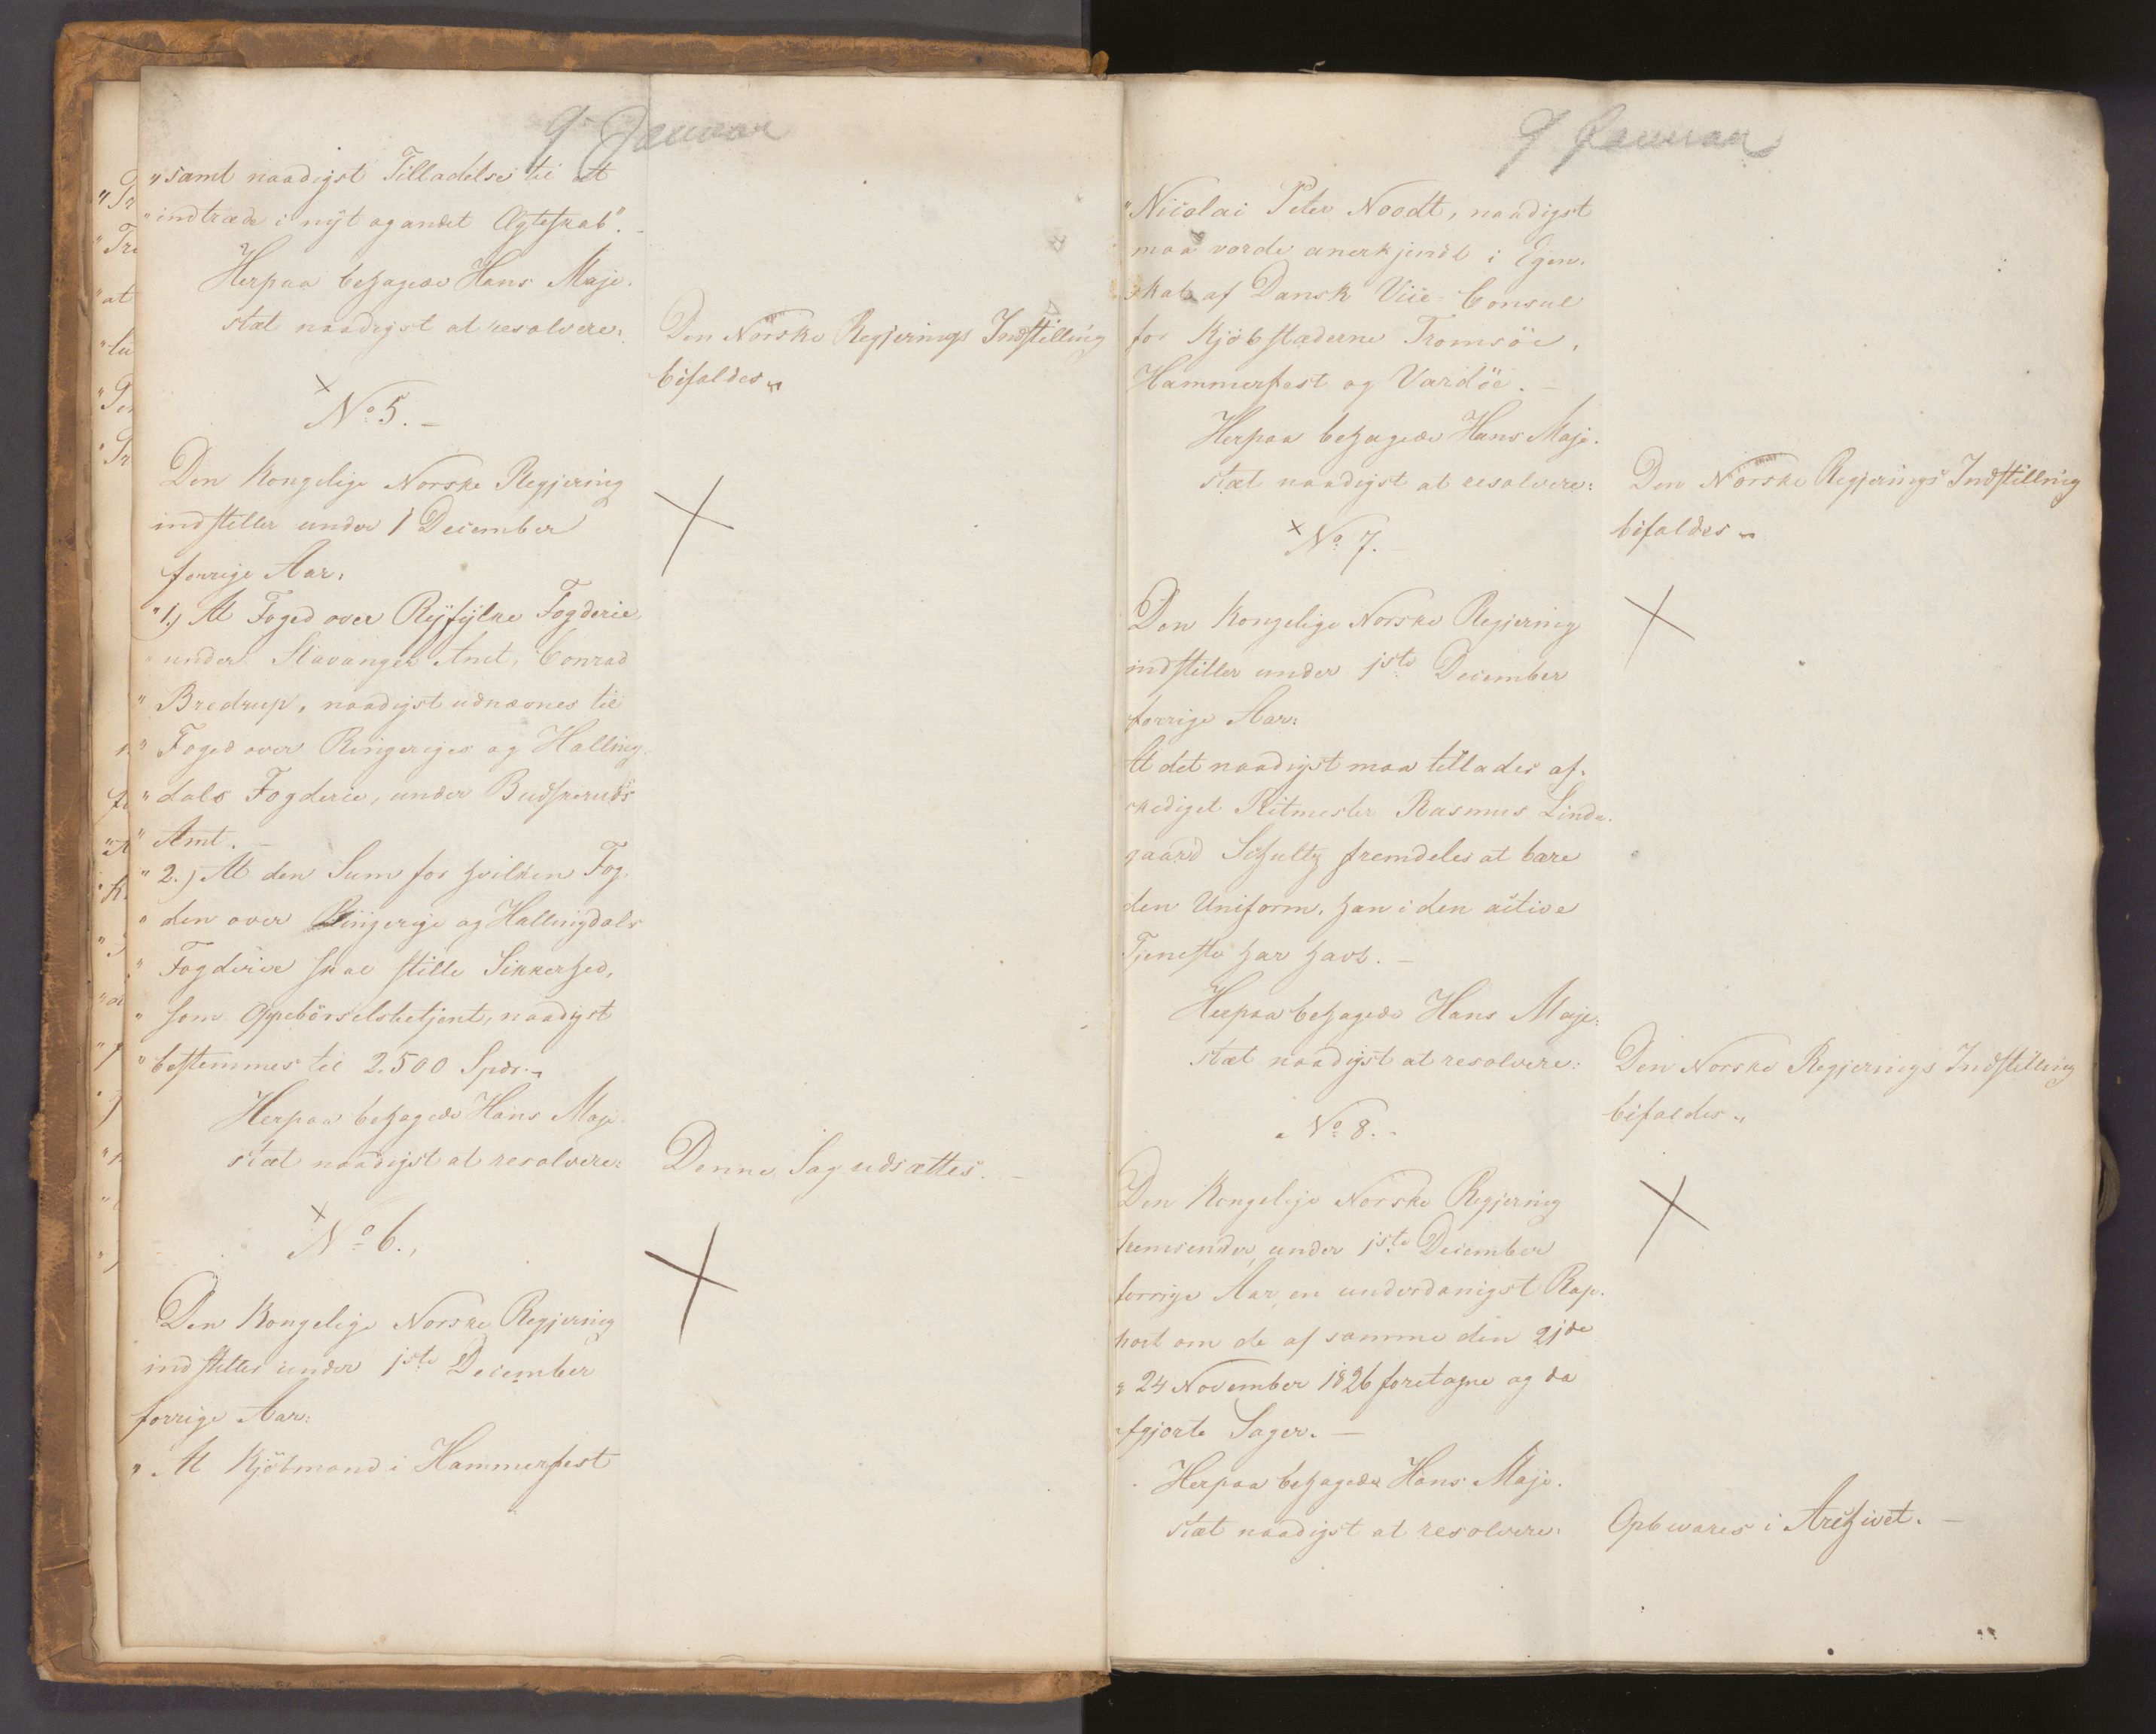 9 Januar
„samt naadigst Tilladelse til at
"indtræde i nÿt og andet Ægteskab".
Herpaa behagede Hans Maje-
stæt naadigst at resolvere:
Den Norske Regjerings Indstilling
bifaldes
No 5.
Den Kongelige Norske Regjering
indstiller under 1 December
forrige Aar,
"1.) At Foged over Rÿfÿlke Fogderie,
"under Stavanger Amt, Conrad
"Bredrup, naadigst udnævnes til
"Foged over Ringeriges og Halling-
"dals Fogderie, under Budskeruds
"Amt.
"2.) At den Sum for hvilken Fog-
"den over Ringerige og Hallingdals
"Fogderie skal stille Sikkerhed,
"som Oppebörselsbetjent, naadigst
"bestemmes til 2.500 Spdr.
Herpaa behagede Hans Maje-
stæt naadigst at resolvere:
Denne Sag udsættes.
No 6.
Den Kongelige Norske Regjering
indstiller under 1ste December
forrige Aar:
"At Kjöbmand i Hammerfest
9 Januar
"Nicolai Peter Noodt, naadigst
maa vorde anerkjendt i Egen-
skab af Dansk Vice-Consul
for Kjöbstæderne Tromsöe,
Hammerfest og Vardöe.
Herpaa behagede Hans Maje-
stæt naadigst at resolvere:
Den Norske Regjerings Indstilling
bifaldes
No 7.
Den Kongelige Norske Regjering
indstiller under 1ste December
forrige Aar:
At det naadigst maa tillades af-
skediget Ritmester Rasmus Linde-
gaard Schultz fremdeles at bære
den Uniform, han i den active
Tjeneste har havt.
Herpaa behagede Hans Maje-
stæt naadigst at resolvere:
Den Norske Regjerings Indstilling
bifaldes
No 8.
Den Kongelige Norske Regjering
fremsender under 1ste December
forrige Aar en underdanigst Rap-
port om de af samme den 21de
& 24 November 1826 foretagne og da
afgjorte Sager.
Herpaa behagede Hans Maje-
stæt naadigst at resolvere:
Opbevares i Archivet.